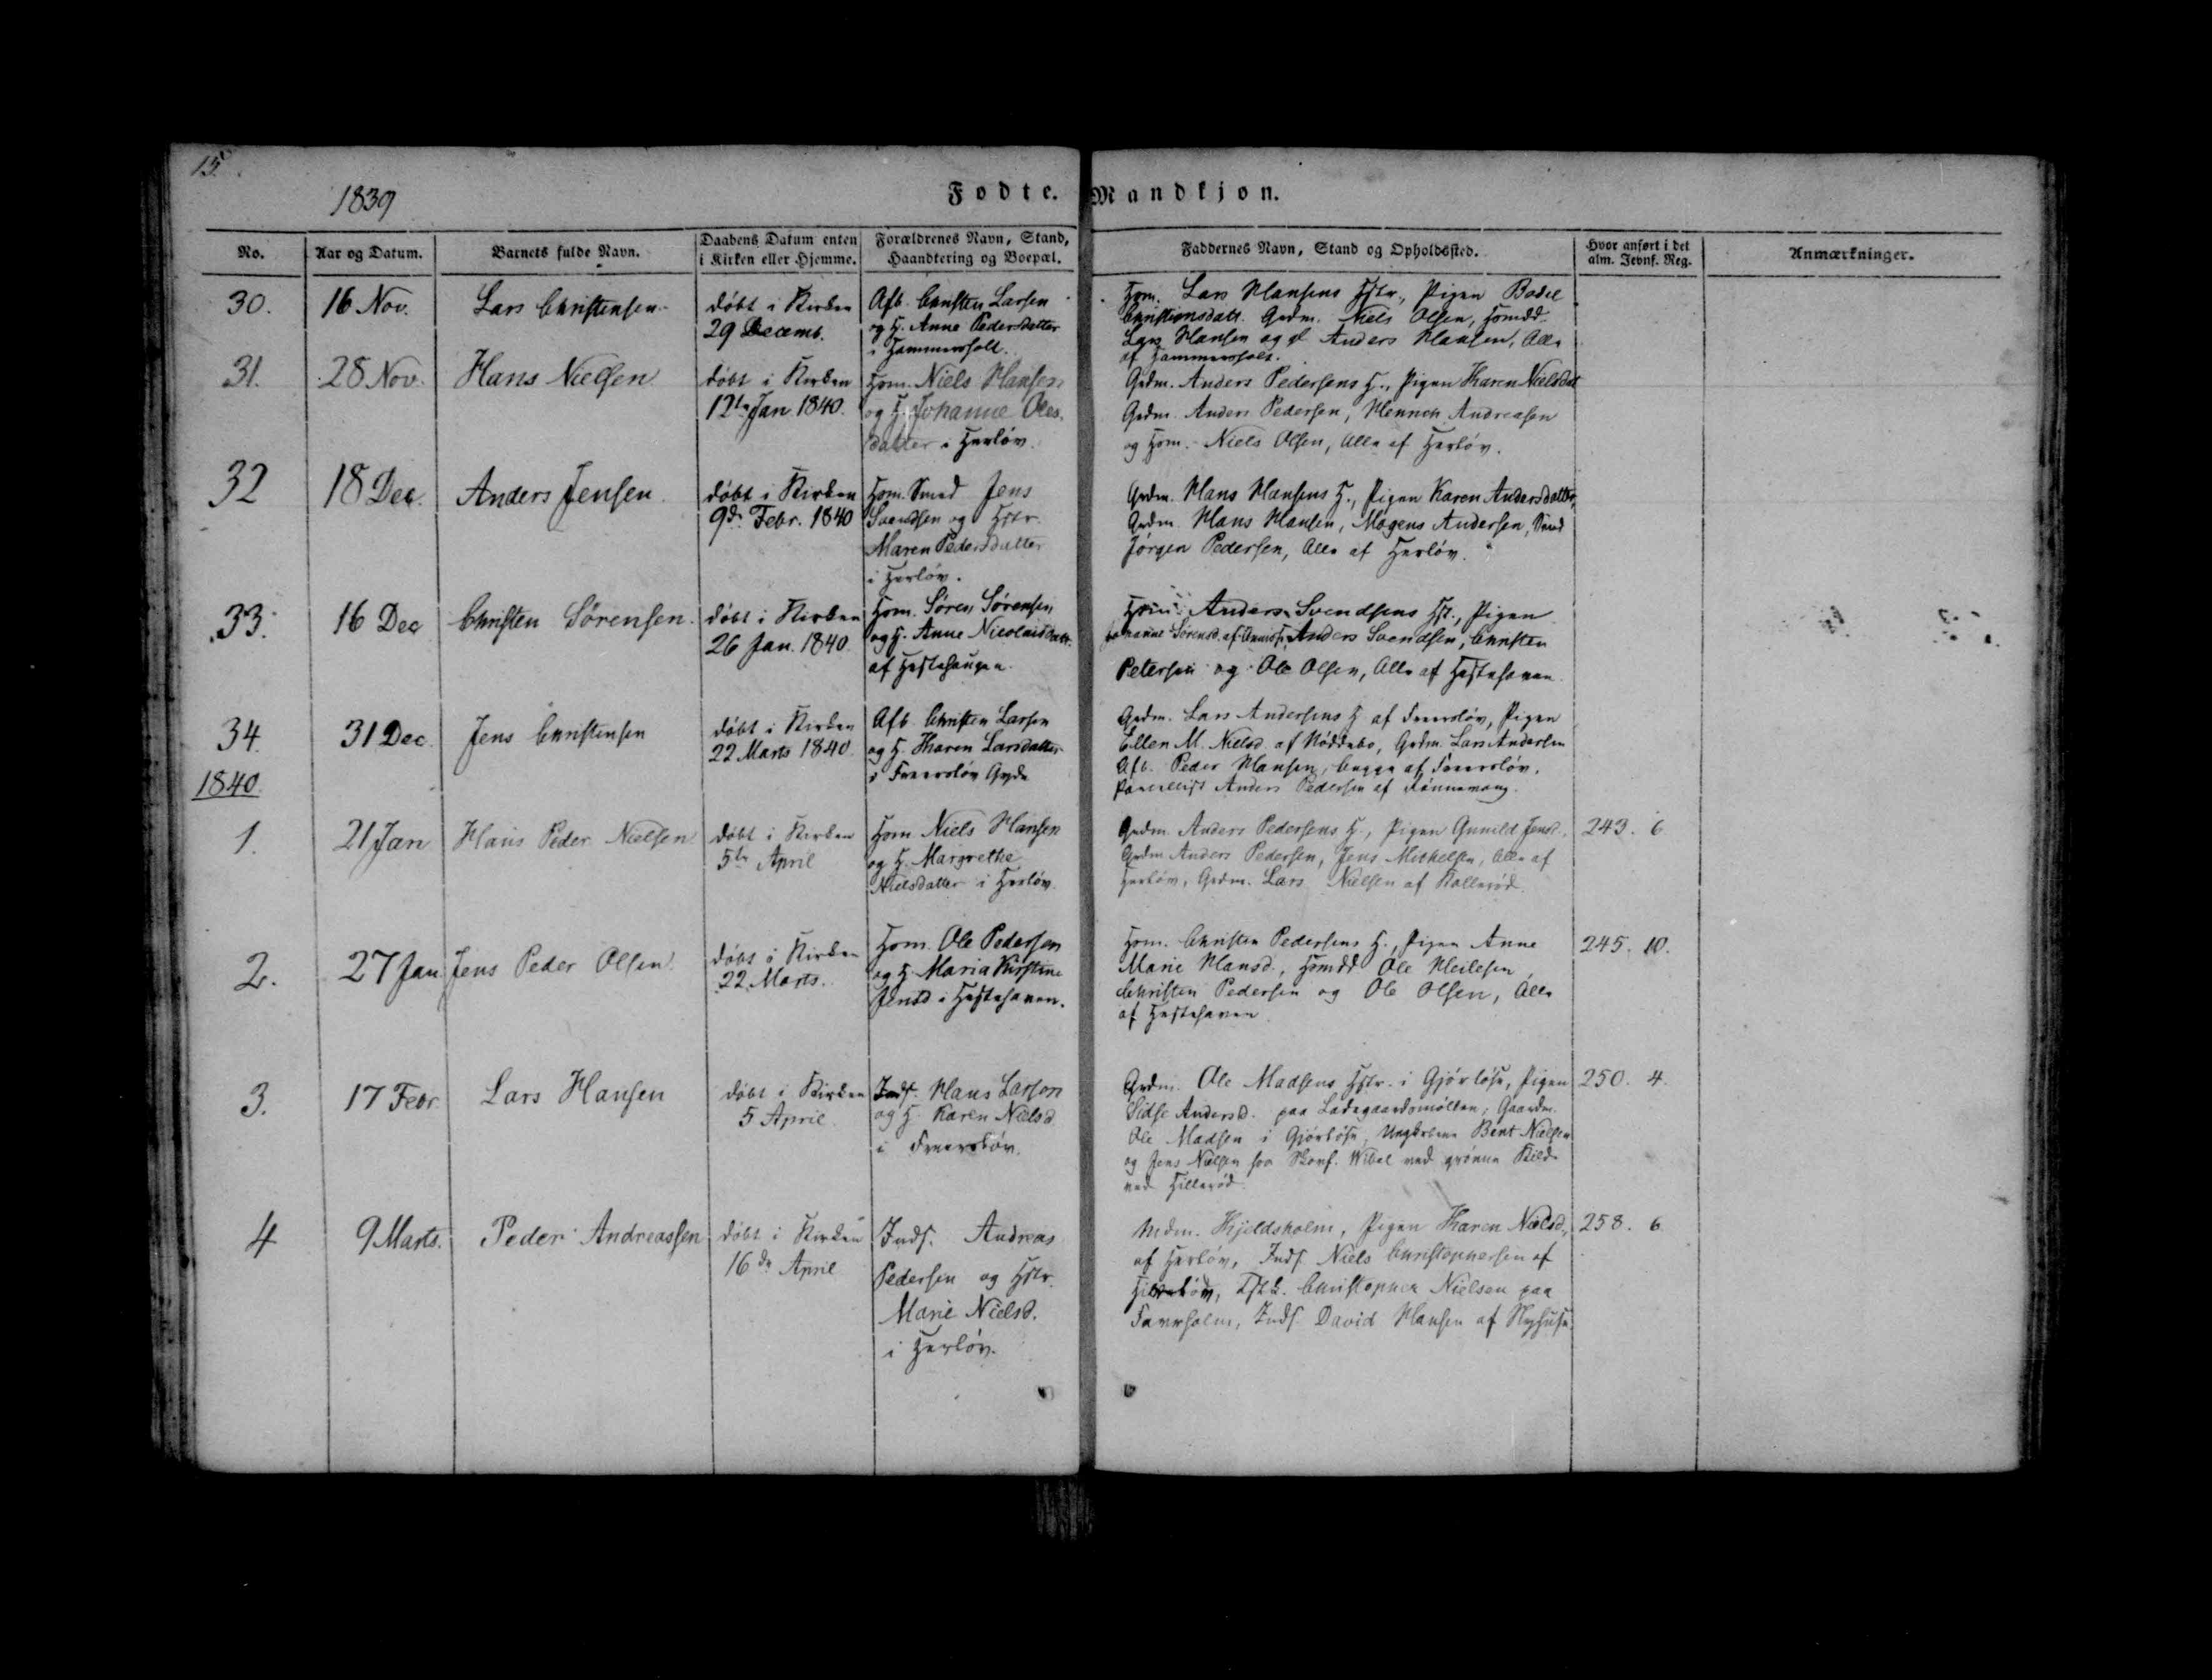 15.
1839
Fodte. Mandkjøn.
No. Aar og Datum. Barnets fulde Navn. Daabens Datum enten i Kirken eller Hjemme. Forældrenes Navn, Stand, Haandtering og Boepæl. Faddernes Navn, Stand og Opholdssted. Hvor anført i det alm. Jevnf. Reg. Anmærkninger.
30. 16 Nov. Lars Christensen
døbt i Kirken
29 Decemb.
Afb. Christen Larsen
og H. Anne Pedersdatter
i Hammersholt.
Hom. Lars Hansens Hstr., Pigen Bodil
Christensdatt. Grdm. Niels Olsen, Homdd
Lars Hansen og Anders Hansen, Alle
af Hammersholt.
31. 28 Nov. Hans Nielsen
døbt i Kirken
12te Jan. 1840.
Hom. Niels Hansen
og H. Johanne Oles-
datter i Herløv.
Grdm. Anders Pedersens H., Pigen Karen Nielsdat
Grdm. Anders Pedersen, Henrich Andreasen
og Hom. Niels Olsen, Alle af Herløv.
32 18 Dec. Anders Jensen
døbt i Kirken
9de Febr. 1840
Hom. Smed Jens
Svendsen og Hstr.
Maren Pedersdatter
i Herløv.
Grdm. Hans Hansens H., Pigen Karen Andersdatter,
Grdm. Hans Hansen, Mogens Andersen, Smed
Jørgen Pedersen, Alle af Herløv.
33. 16 Dec Christen Sørensen.
døbt i Kirken
26 Jan. 1840.
Hom. Søren Sørensen
og H. Anne Nicolaisdatt.
af Hestehaugen.
Hom. Anders Svendsens Hst., Pigen
Johanne Sørensd. af Anders Svendsen, Christen
Petersen og Ole Olsen, Alle af Hestehaven.
34. 31 Dec. Jens Christensen
døbt i Kirken
22 Marts 1840.
Afb. Christen Larsen
og H. Karen Larsdatter
i Freersløv
Grdm. Lars Andersens H. af Freersløv, Pigen
Ellen M. Nielsd. af Nøddebo, Grdm. Lars Andersen
Afb. Peder Hansen, begge af Freersløv.
Parcellist Anders Pedersen af
1840.
1. 21 Jan Hans Peder Nielsen
døbt i Kirken
5te April
Hom. Niels Hansen
og H. Margrethe
Nielsdatter i Herløv.
Grdm. Anders Pedersens H., Pigen Gunild Jensd.,
Grdm. Anders Pedersen, Jens Mikkelsen, Alle af
Herløv, Grdm. Lars Nielsen af Kollerød.
243. 6
2. 27 Jan. Jens Peder Olsen.
døbt i Kirken
22 Marts.
Hom. Ole Pedersen
og H. Maria Kirstine
Jensd i Hestehaven.
Hom. Christen Pedersens H., Pigen Anne
Marie Hansd., Homdd Ole
Christen Pedersen og Ole Olsen, Alle
af Hestehaven.
245. 10.
3. 17 Febr. Lars Hansen
døbt i Kirken
5 April.
Inds. Hans Larsen
og H. Karen Nielsd
i Freersløv.
Grdm. Ole Madsens Hstr. i Gjørløse, Pigen
Sidse Andersd. paa Ladegaardsmøllen, Gaardm.
Ole Madsen i Gjørløse, Ungkarlene Bent Nielsen
og Jens Nielsen hos Wibel ved grønne Kilde
ved Hillerød.
250. 4.
4 9 Marts. Peder Andreassen
døbt i Kirken
16de April
Inds. Andreas
Pedersen og Hstr.
Marie Nielsd.
i Herløv.
Mdm. Kjeldsholm, Pigen Karen Nielsd.,
af Herløv, Inds. Niels Christophersen af
Christopher Nielsen paa
Favrholm, Inds. David Hansen af Nyhuse.
258. 6.